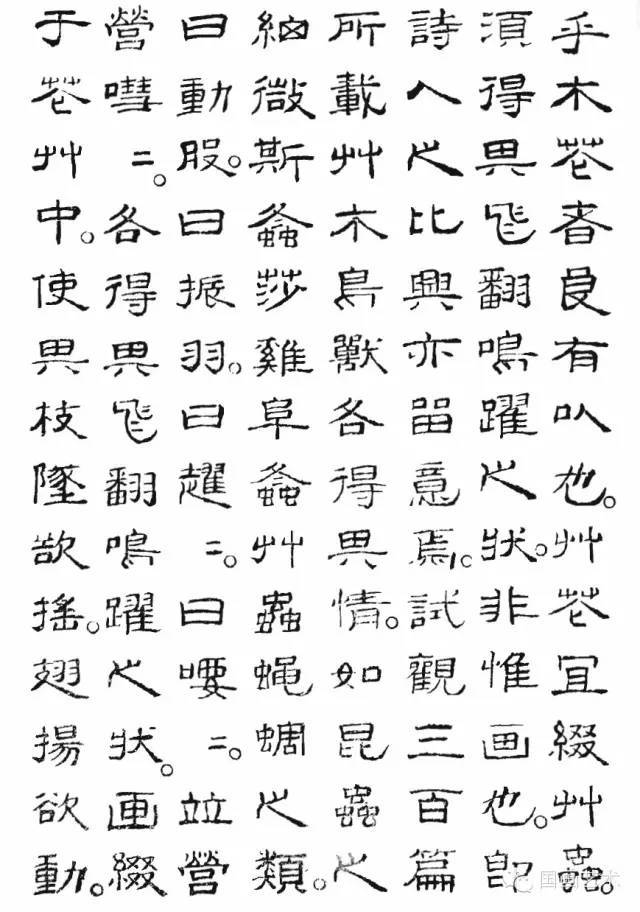 乎木芲者良有㕥也。艸芲宜綴艸蟲。
須得其飛翻鳴躍之狀。非惟画也。即
詩人之比興亦留意焉。試觀三百篇
所載艸木鳥獸各得其情。如昆蟲之
細微斯螽莎雞阜螽艸蟲蝇蜩之類。
曰動股。曰振羽。曰趯二。曰喓二。竝營
營嘒二。各得其飛翻鳴躍之狀。画綴
于芲艸中。使其枝墜欲搖。翅揚欲動。
国画艺术